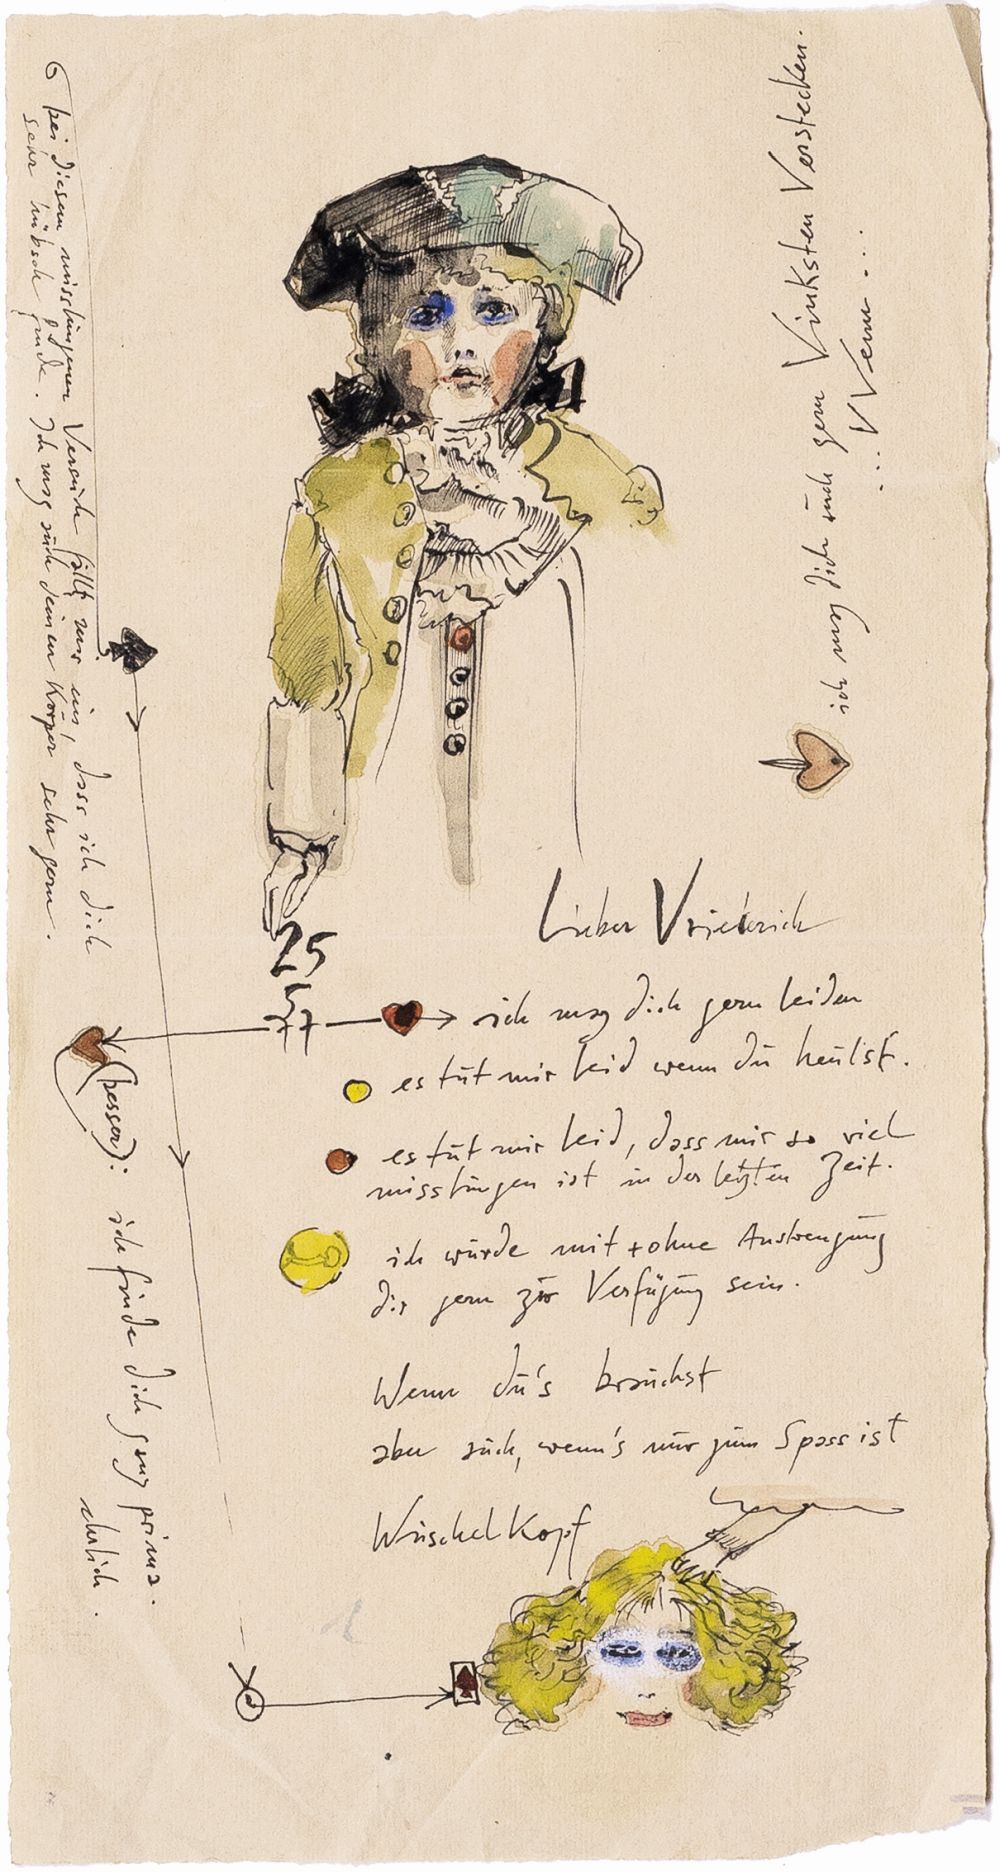 Lieber Vriederich
25
5
77
ich mag dich gern leiden
es tut mir leid wenn du heulst.
es tut mir leid, dass mir so viel
misslungen ist in der letzten Zeit.
ich würde mit + ohne Anstrengung
dir gern zur Verfügung sein.
Wenn du's brauchst
aber auch, wenn's nur zum Spass ist
Wuschelkopf
ich mag dich auch gern Vinksten Verstecken.
...VVenn...
bei diesem misslungenen Versuch fällt mir ein, dass ich dich
sehr hübsch finde. Ich mag auch deinen Körper sehr gern.
(besser): ich finde dich ganz prima.
ehrlich.